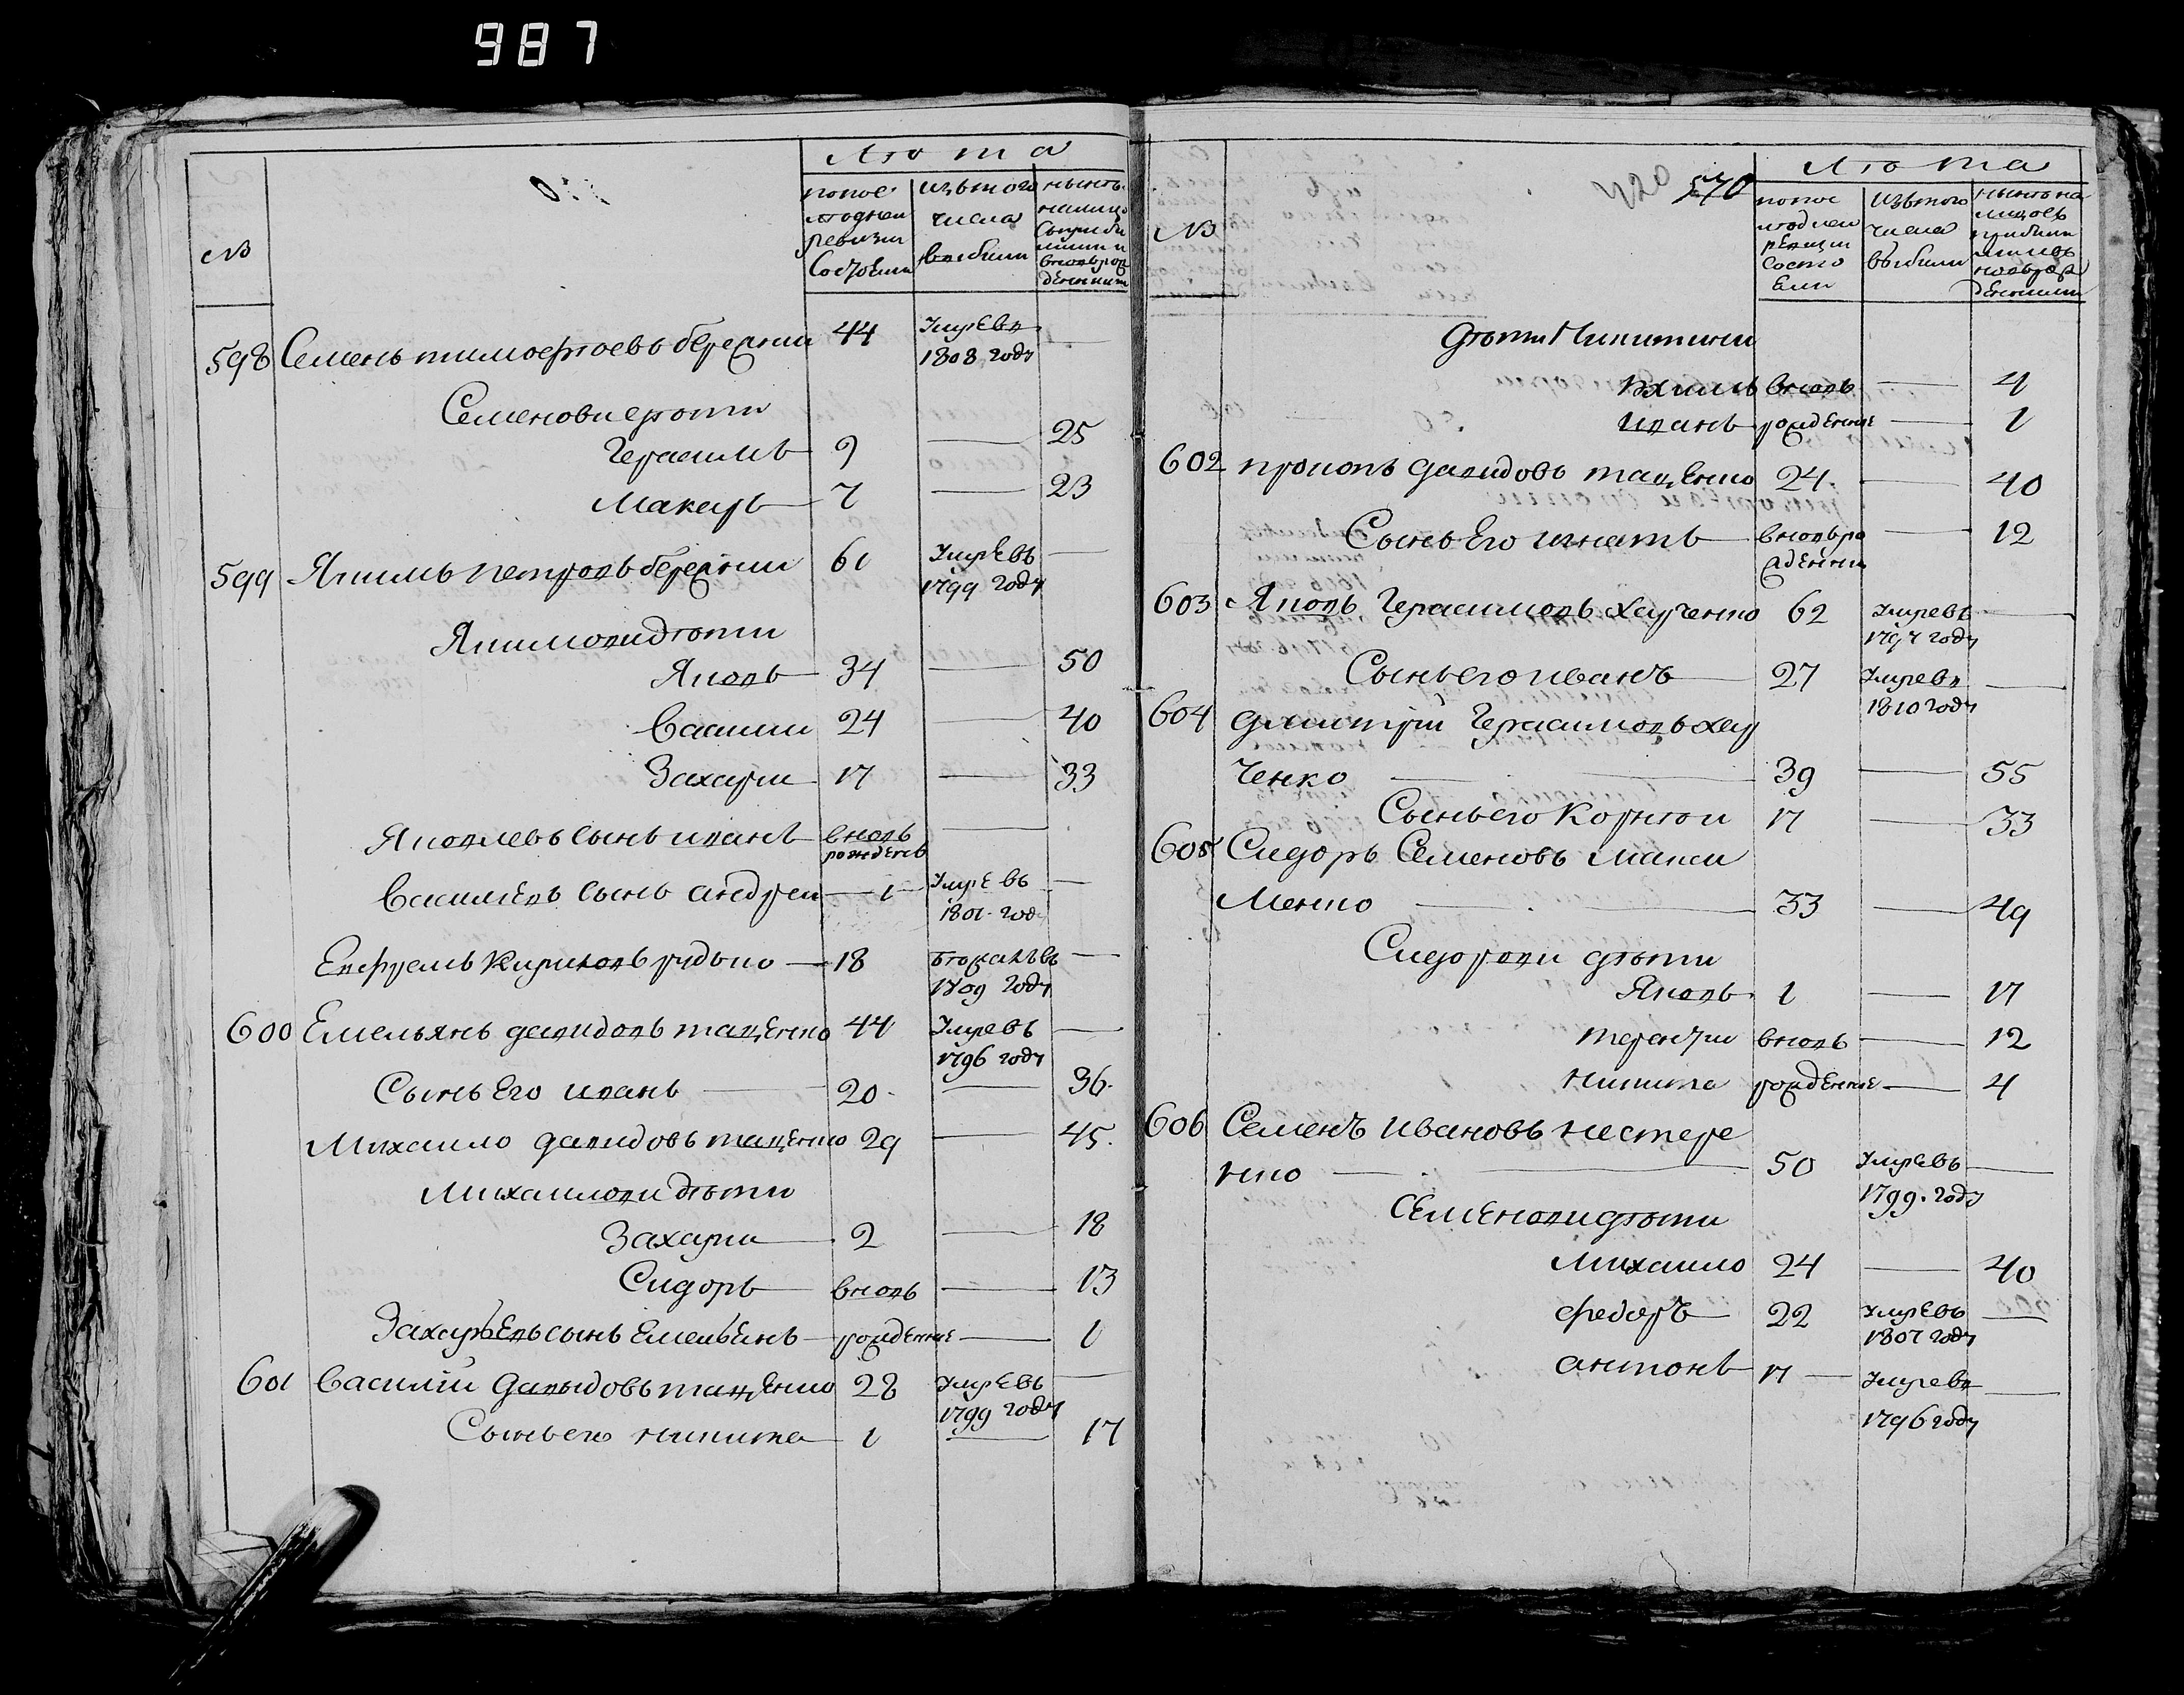 987
Лѣта
№
по последней ревизии состояли
изъ того числа выбыли
ныне на лицо съ прибылыми и вновь рожденными
598 Семенъ тимофѣевъ бережни 44 Умре въ — 1808 году
Семенови дѣти
Герасимъ 9 — 25
Макаръ 7 — 23
599 Якимъ петровъ бережни 61 Умре въ — 1799 году
Якимови дѣти
Яковъ 34 — 50
Васили 24 — 40
Захари 17 — 33
Яковлевъ сынъ иванъ вновь рожденъ —
Василевъ сынъ андреи 1 Умре въ — 1801 году
Ефремъ Кириковъ рудько 18 бежалъ въ — 1809 году
600 Емельянъ давидовъ таценко 44 Умре въ — 1796 году
Сынъ Его иванъ 20 — 36
Михаило давидовъ таценко 29 — 45
Михаилови дѣти
Захари 2 — 18
Сидоръ вновь — 13
Захарьевъ сынъ Емельянъ рожденне — 1
601 Василии Давыдовъ таценко 28 Умре въ — 1799 году
Сынъ его никита 1 — 17
570
Лѣта
№
по последнеи ревизии состояли
изъ того числа выбыли
ныне на лицо съ прибылими и въ новь рожденними
дѣти Никитини
якимъ вновь — 4
иванъ рожденне — 1
602 прокопъ давидовъ таценко 24 — 40
Сынъ Его игнатъ вновь рожденни — 12
603 Яковъ Герасимовъ харченко 62 Умре въ — 1797 году
Сынъ его иванъ 27 Умре въ — 1810 году
604 дмитрии Герасимовъ хар
ченко — 39 — 55
Сынъ его Корнѣи 17 — 33
605 Сидоръ Семеновъ Макси
менко — 33 — 49
Сидорови дѣти
Яковъ 1 — 17
терентии вновь — 12
никита рожденне — 4
606 Семенъ ивановъ нестере
нко — 50 Умре въ — 1799 году
Семенови дѣти
Михаило 24 — 40
федоръ 22 Умре въ — 1807 году
антонъ 17 — Умре въ — 1796 году